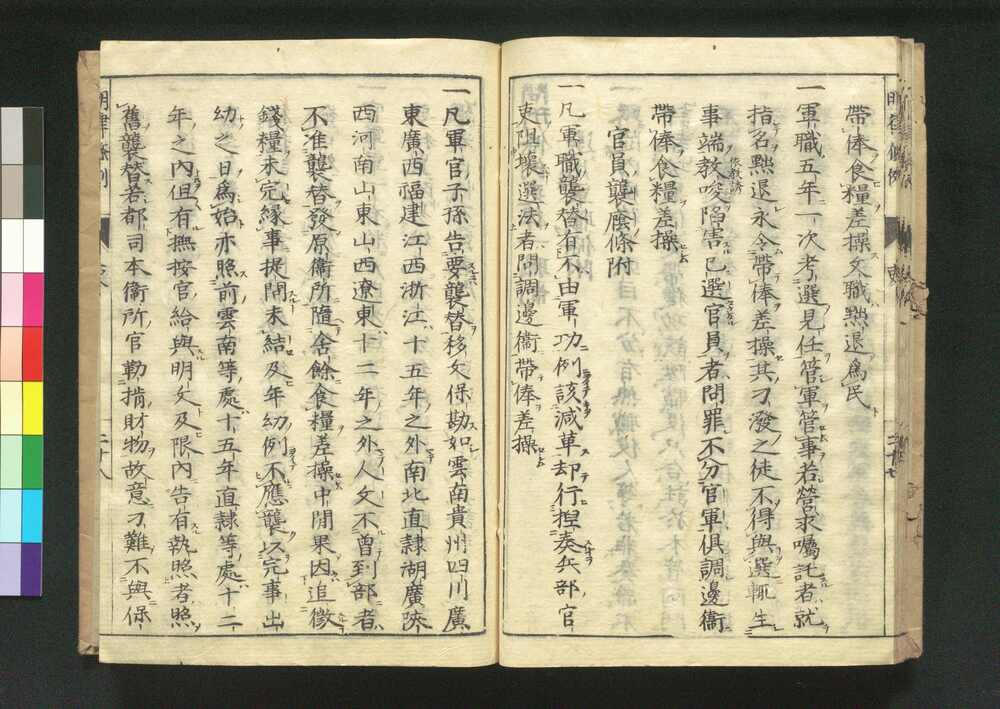 帶俸食糧差操文職㸃退為民
一軍職五年一次考選見任管軍管事若營求囑託者就
指名㸃退永令帶俸差操其刁潑之徒不得與選輒生
事端教唆陷害已選官員者問罪不分官軍俱調邊衛
帶俸食糧差操
官員襲廕條附
一凡軍職襲替有不由軍功例該減革却行揑奏兵部官
吏阻壞選法者問調邊衛帶俸差操
一凡軍官子孫告要襲替移文保勘如雲南貴州四川廣
東廣西福建江西浙江十五年之外南北直隷湖廣陝
西河南山東山西遼東十二年之外人文不曾到部者
不准襲替發原衛所隨舍餘食糧差操中間果因追徵
錢糧未完縁事提問未結及年幼例不應襲以完事出
幼之日為始亦照前雲南等處十五年直隷等處十二
年之內但有撫按官給與明文及限內告有執照者照
舊襲替若都司本衛所官勒掯財物故意刁難不與保
二十八